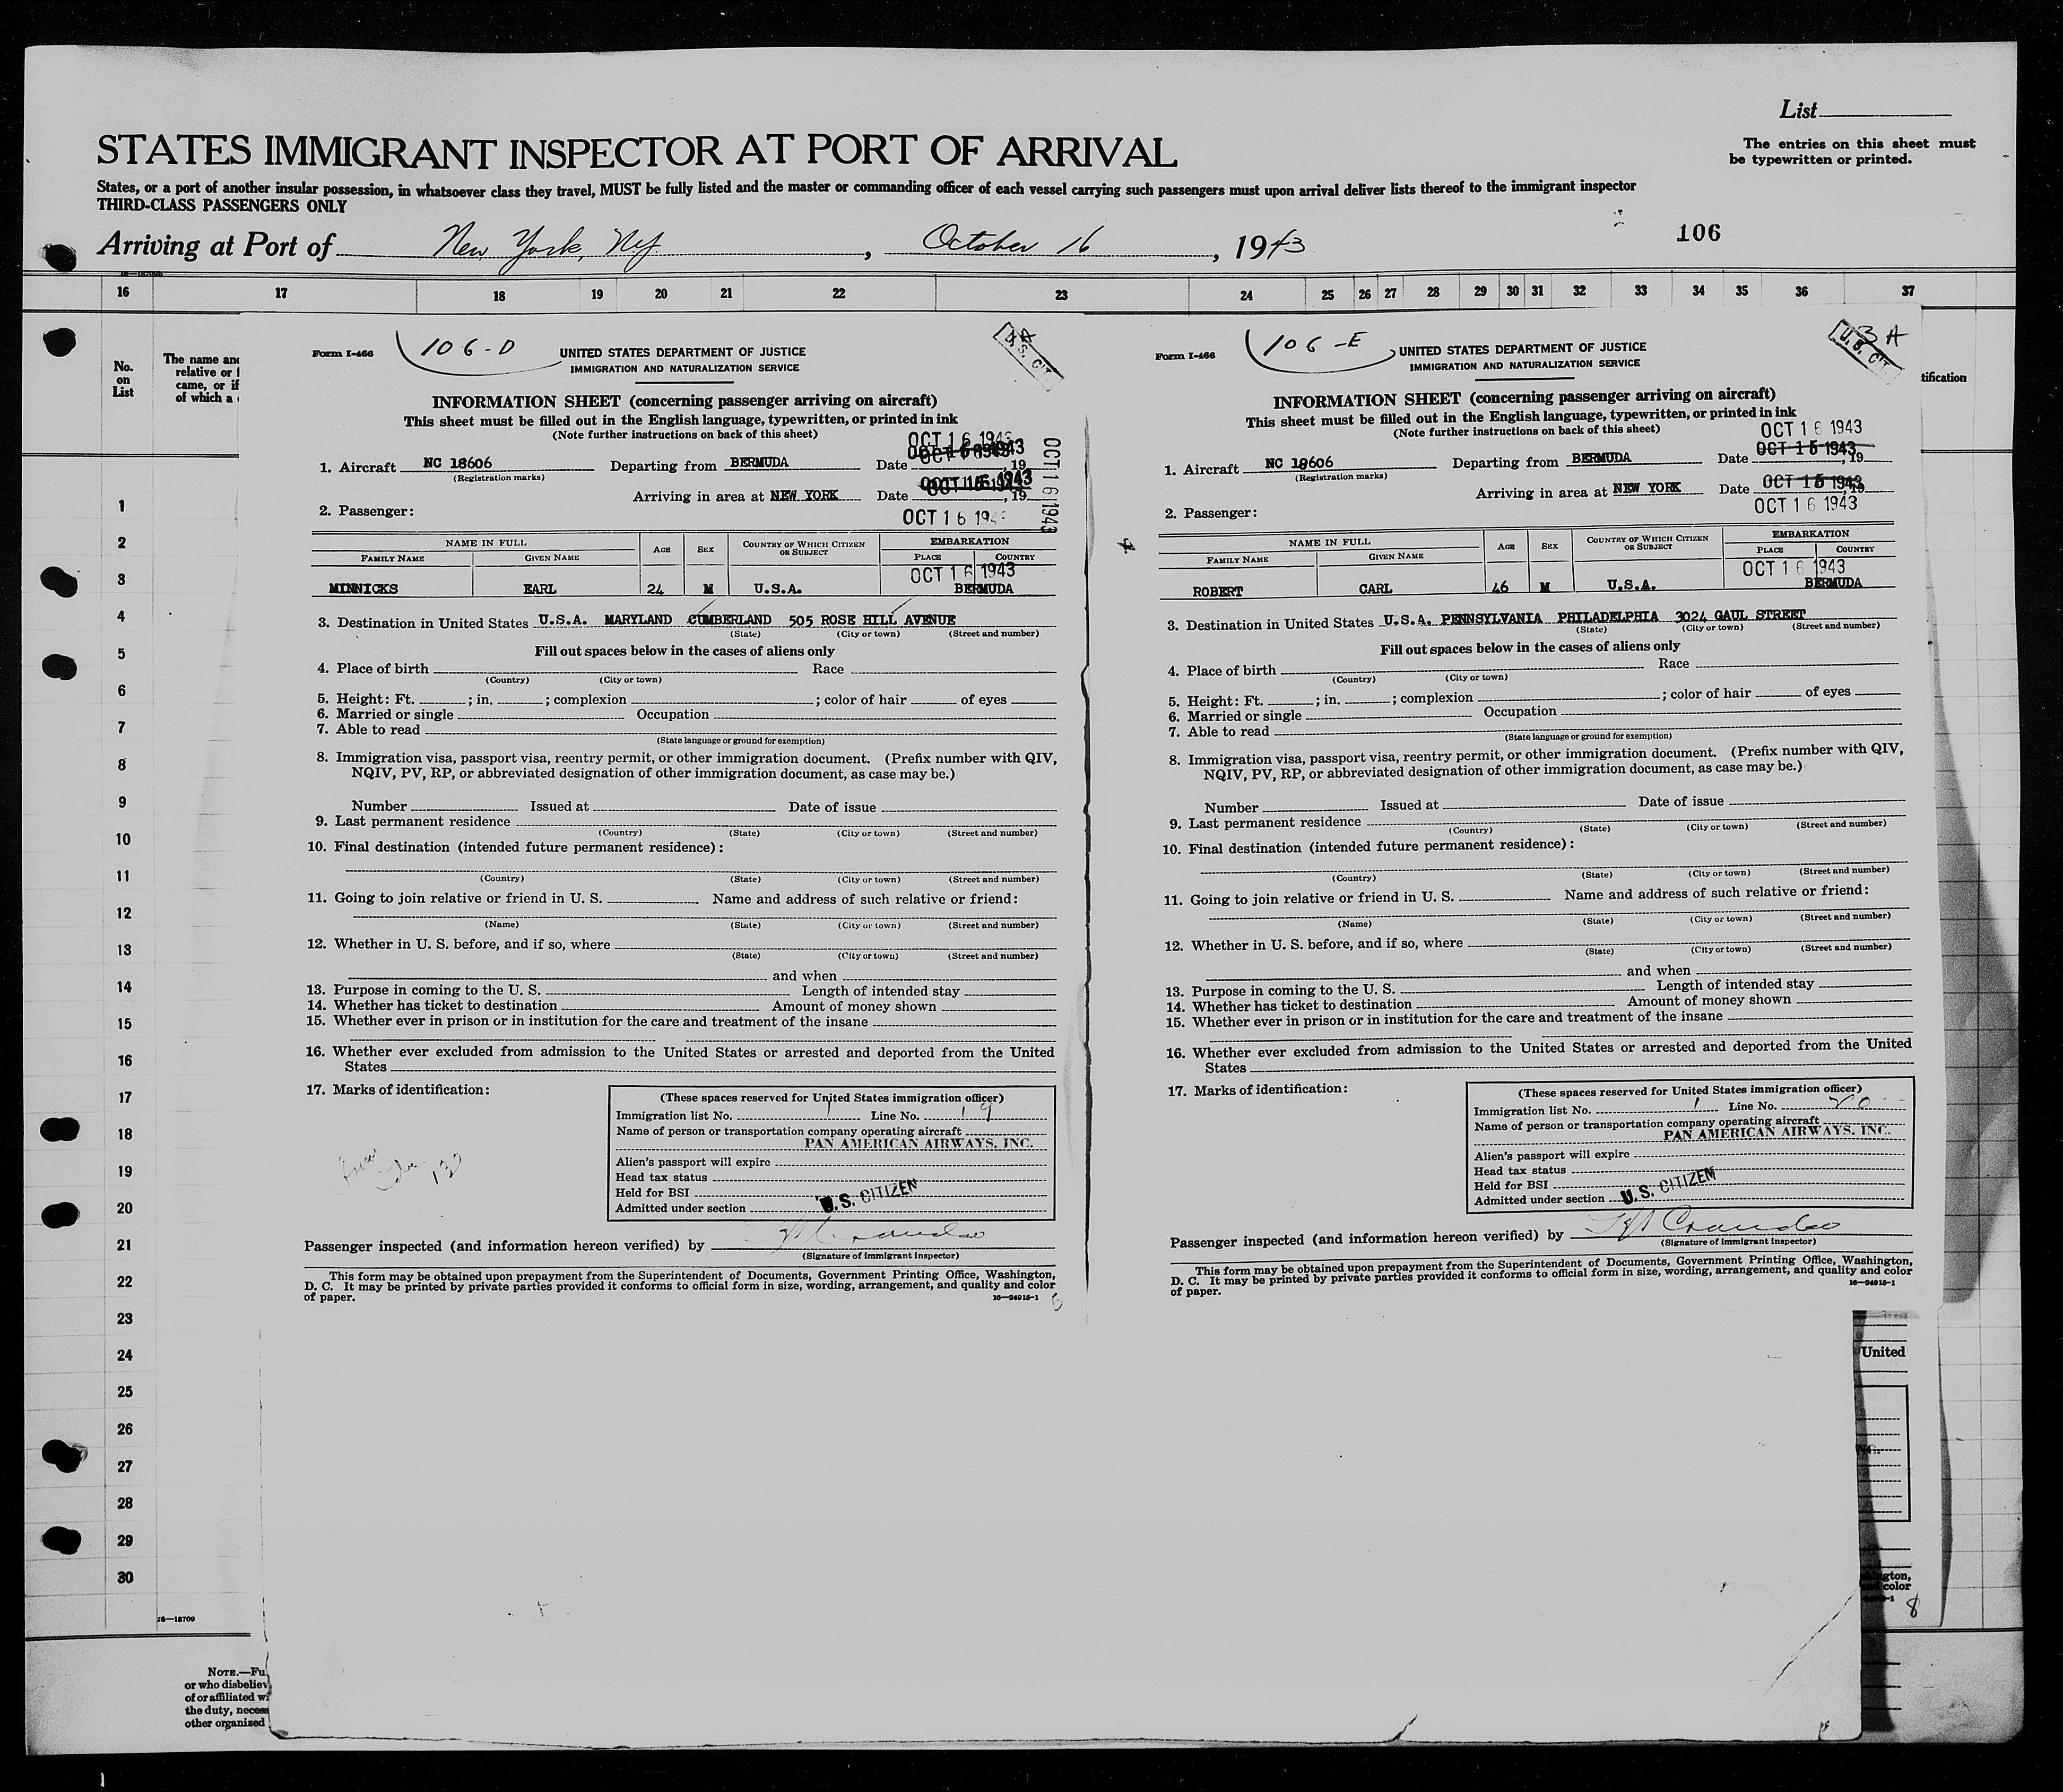 List
STATES IMMIGRANT INSPECTOR AT PORT OF ARRIVAL
The entries on this sheet must
be typewritten or printed.
States, or a port of another insular possession, in whatsoever class they travel, MUST be fully listed and the master or commanding officer of each vessel carrying such passengers must upon arrival deliver lists thereof to the immigrant inspector
THIRD-CLASS PASSENGERS ONLY
Arriving at Port of New York, NY, October 16, 1943
106
16 17 18 19 20 21 22 23 24 25 26 27 28 29 30 31 32 33 34 35 36 37
No.
on
List
The name and
relative or
came, or if
of which a
tification
1
2
3
4
5
6
7
8
9
10
11
12
13
14
15
16
17
18
19
20
21
22
23
24
25
26
27
28
29
30
16—18709
NOTE.—Fu
or who disbeliev
of or affiliated wi
the duty, neces
other organized
Form I-466
106-D
UNITED STATES DEPARTMENT OF JUSTICE
IMMIGRATION AND NATURALIZATION SERVICE
U.S. CIT
INFORMATION SHEET (concerning passenger arriving on aircraft)
This sheet must be filled out in the English language, typewritten, or printed in ink
(Note further instructions on back of this sheet)
OCT 16 1943
1. Aircraft NC 18606 Departing from BERMUDA Date OCT 15 1943, 19
(Registration marks)
Arriving in area at NEW YORK Date OCT 15 1943, 19
OCT 16 1943
2. Passenger:
OCT 16 194
NAME IN FULL AGE SEX COUNTRY OF WHICH CITIZEN OR SUBJECT EMBARKATION
FAMILY NAME GIVEN NAME PLACE COUNTRY
OCT 16 1943
MINNICKS EARL 24 M U.S.A. BERMUDA
3. Destination in United States U.S.A. MARYLAND CUMBERLAND 505 ROSE HILL AVENUE
(State) (City or town) (Street and number)
Fill out spaces below in the cases of aliens only
4. Place of birth Race
(Country) (City or town)
5. Height: Ft. ; in. ; complexion ; color of hair of eyes
6. Married or single Occupation
7. Able to read
(State language or ground for exemption)
8. Immigration visa, passport visa, reentry permit, or other immigration document. (Prefix number with QIV,
NQIV, PV, RP, or abbreviated designation of other immigration document, as case may be.)
Number Issued at Date of issue
9. Last permanent residence
(Country) (State) (City or town) (Street and number)
10. Final destination (intended future permanent residence):
(Country) (State) (City or town) (Street and number)
11. Going to join relative or friend in U. S. Name and address of such relative or friend:
(Name) (State) (City or town) (Street and number)
12. Whether in U. S. before, and if so, where
(State) (City or town) (Street and number)
and when
13. Purpose in coming to the U. S. Length of intended stay
14. Whether has ticket to destination Amount of money shown
15. Whether ever in prison or in institution for the care and treatment of the insane
16. Whether ever excluded from admission to the United States or arrested and deported from the United
States
17. Marks of identification:
(These spaces reserved for United States immigration officer)
Immigration list No. 1 Line No. 19
Name of person or transportation company operating aircraft
PAN AMERICAN AIRWAYS, INC.
Alien's passport will expire
Head tax status
Held for BSI
Admitted under section U.S. CITIZEN
Passenger inspected (and information hereon verified) by
(Signature of immigrant inspector)
This form may be obtained upon prepayment from the Superintendent of Documents, Government Printing Office, Washington,
D. C. It may be printed by private parties provided it conforms to official form in size, wording, arrangement, and quality and color
of paper.
16—24915-1
Form I-466
106-E
UNITED STATES DEPARTMENT OF JUSTICE
IMMIGRATION AND NATURALIZATION SERVICE
3A
U.S. CIT
INFORMATION SHEET (concerning passenger arriving on aircraft)
This sheet must be filled out in the English language, typewritten, or printed in ink
(Note further instructions on back of this sheet)
OCT 16 1943
1. Aircraft NC 18606 Departing from BERMUDA Date OCT 15 1943, 19
(Registration marks)
Arriving in area at NEW YORK Date OCT 15 1943, 19
2. Passenger:
OCT 16 1943
NAME IN FULL AGE SEX COUNTRY OF WHICH CITIZEN OR SUBJECT EMBARKATION
FAMILY NAME GIVEN NAME PLACE COUNTRY
OCT 16 1943
ROBERT CARL 46 M U.S.A. BERMUDA
3. Destination in United States U.S.A. PENNSYLVANIA PHILADELPHIA 3024 GAUL STREET
(State) (City or town) (Street and number)
Fill out spaces below in the cases of aliens only
4. Place of birth Race
(Country) (City or town)
5. Height: Ft. ; in. ; complexion ; color of hair of eyes
6. Married or single Occupation
7. Able to read
(State language or ground for exemption)
8. Immigration visa, passport visa, reentry permit, or other immigration document. (Prefix number with QIV,
NQIV, PV, RP, or abbreviated designation of other immigration document, as case may be.)
Number Issued at Date of issue
9. Last permanent residence
(Country) (State) (City or town) (Street and number)
10. Final destination (intended future permanent residence):
(Country) (State) (City or town) (Street and number)
11. Going to join relative or friend in U. S. Name and address of such relative or friend:
(Name) (State) (City or town) (Street and number)
12. Whether in U. S. before, and if so, where
(State) (City or town) (Street and number)
and when
13. Purpose in coming to the U. S. Length of intended stay
14. Whether has ticket to destination Amount of money shown
15. Whether ever in prison or in institution for the care and treatment of the insane
16. Whether ever excluded from admission to the United States or arrested and deported from the United
States
17. Marks of identification:
(These spaces reserved for United States immigration officer)
Immigration list No. 1 Line No. 20
Name of person or transportation company operating aircraft
PAN AMERICAN AIRWAYS, INC.
Alien's passport will expire
Head tax status
Held for BSI
Admitted under section U.S. CITIZEN
Passenger inspected (and information hereon verified) by
(Signature of immigrant inspector)
This form may be obtained upon prepayment from the Superintendent of Documents, Government Printing Office, Washington,
D. C. It may be printed by private parties provided it conforms to official form in size, wording, arrangement, and quality and color
of paper.
16—24915-1
United
NC.
ngton,
color
8